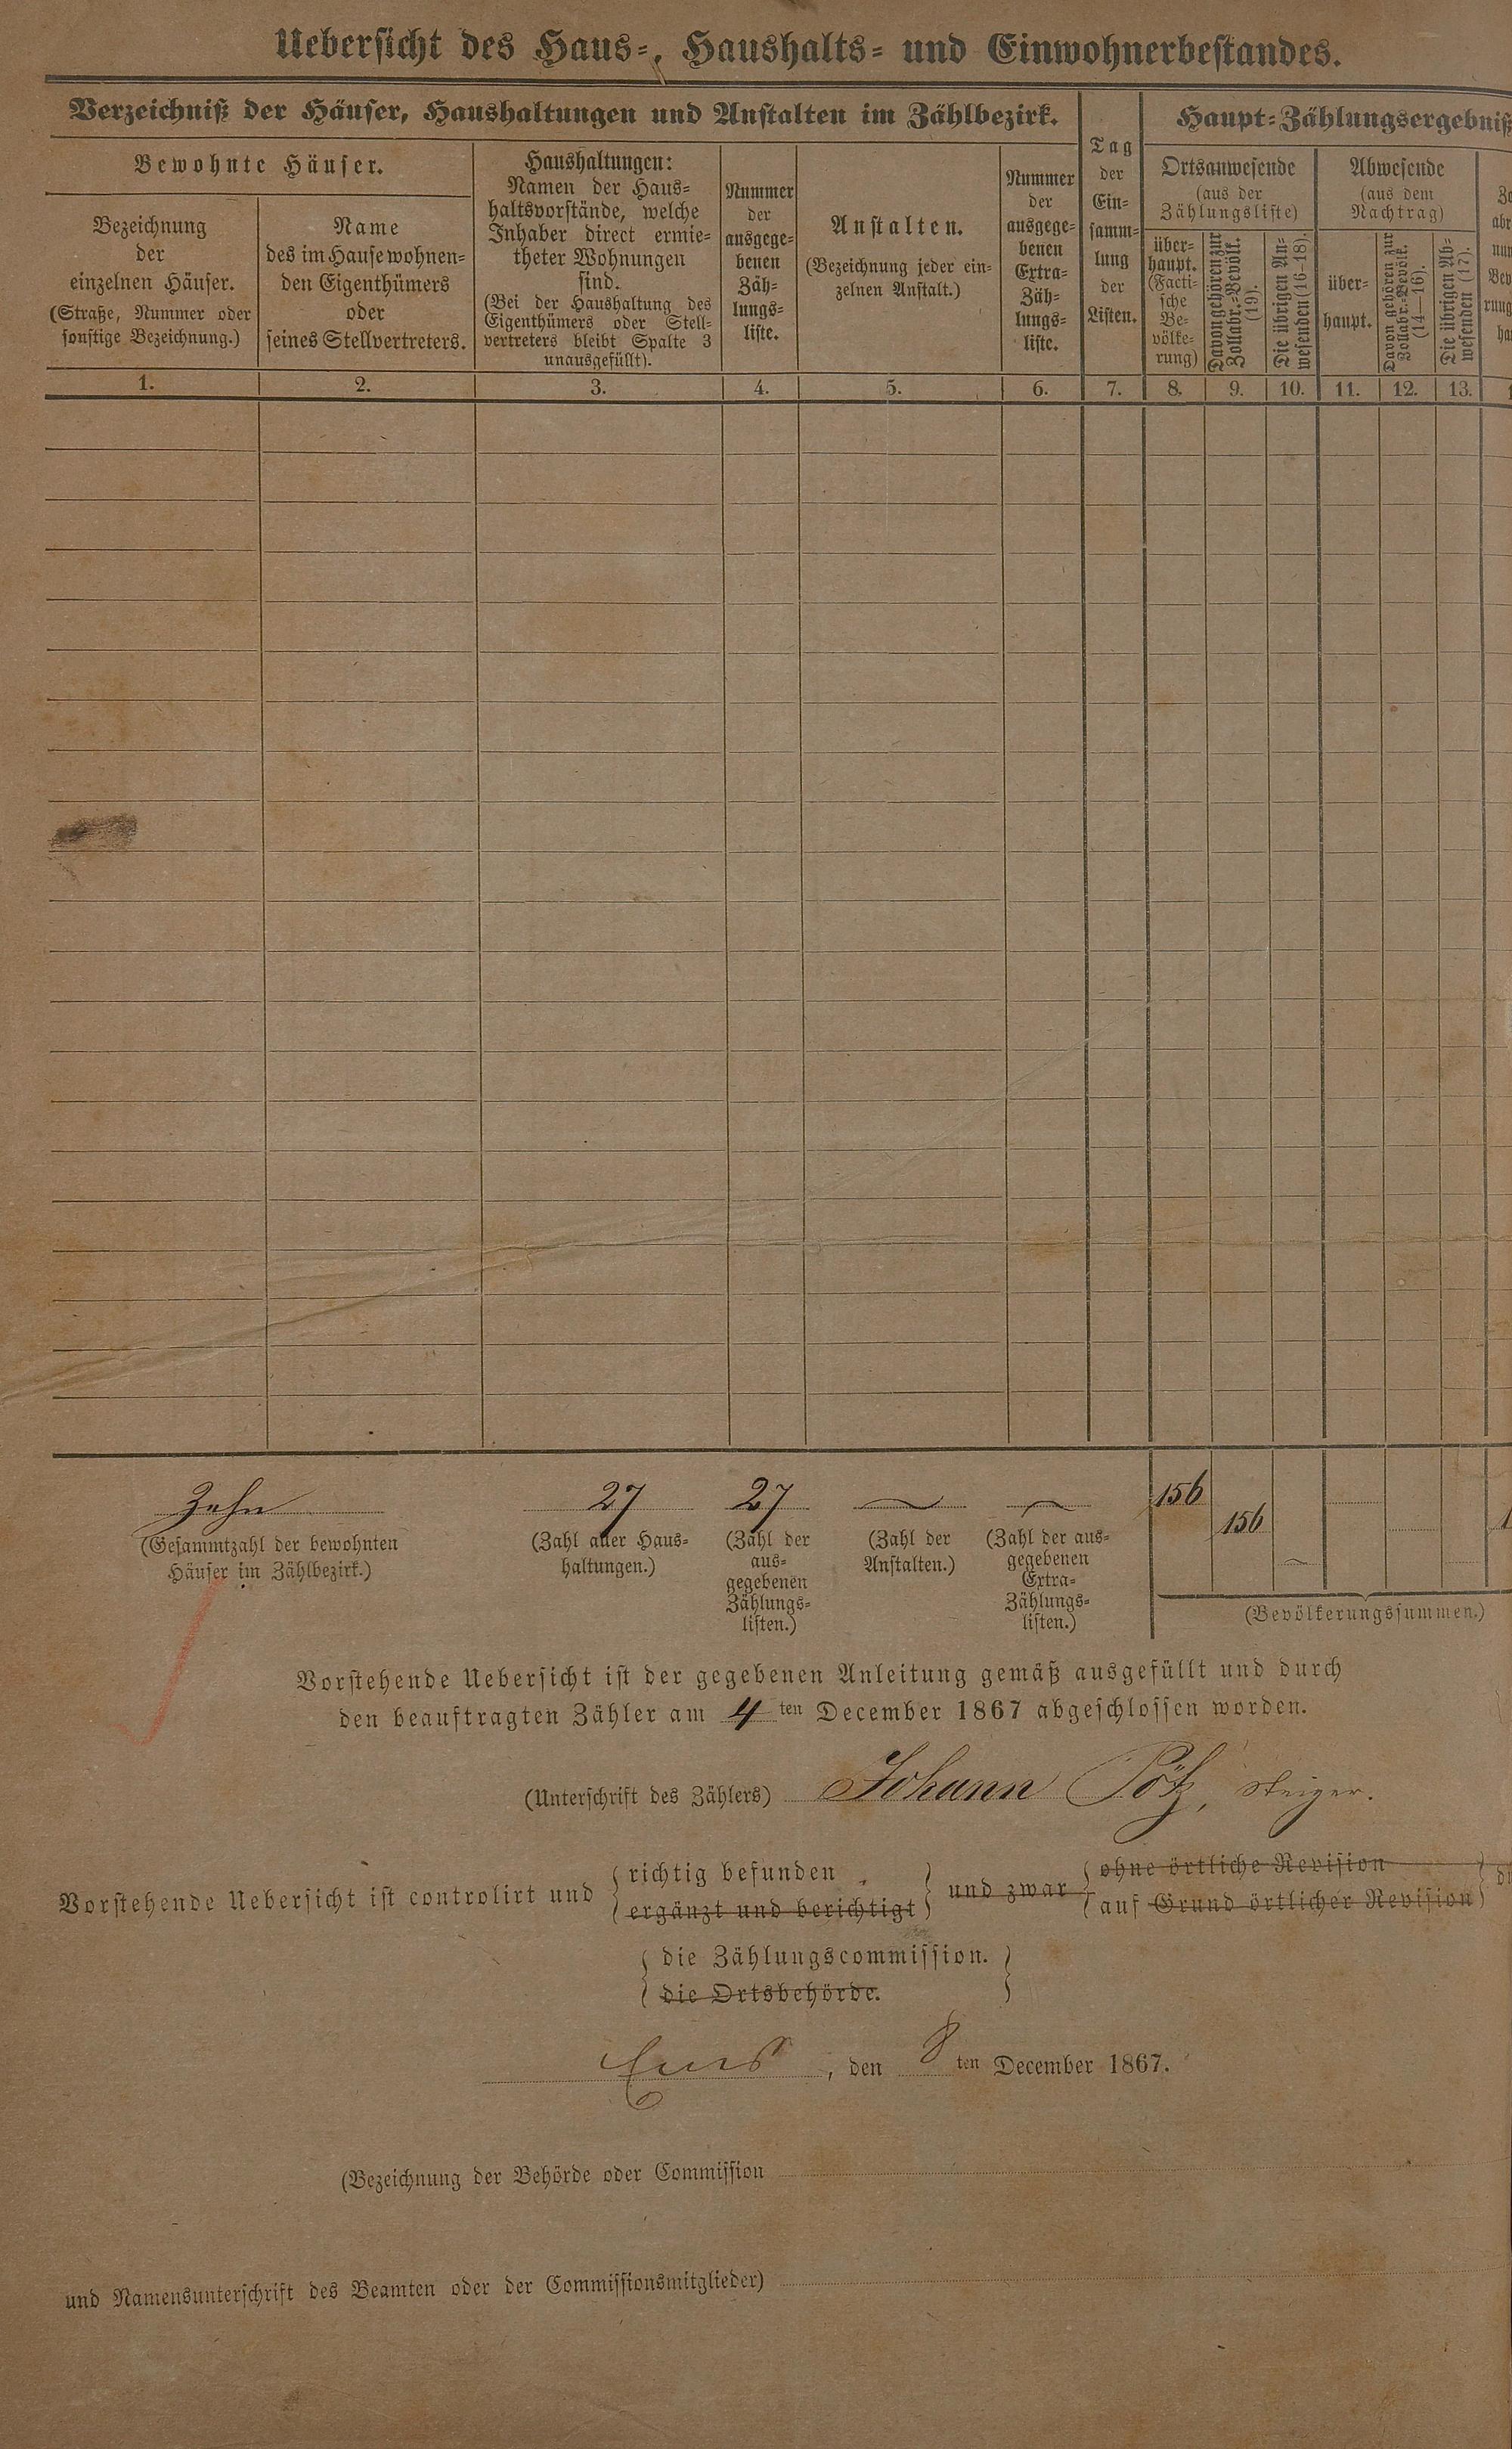 Uebersicht des Haus-, Haushalts- und Einwohnerbestandes.
Verzeichniß der Häuser, Haushaltungen und Anstalten im Zählbezirk.
Bewohnte Häuser.
Bezeichnung
der
einzelnen Häuser.
(Straße, Nummer oder
sonstige Bezeichnung.)
Name
des im Hause wohnen-
den Eigenthümers
oder
seines Stellvertreters.
Haushaltungen:
Namen der Haus-
haltsvorstände, welche
Inhaber direct ermie-
theter Wohnungen
sind.
(Bei der Haushaltung des
Eigenthümers oder Stell-
vertreters bleibt Spalte 3
unausgefüllt).
Nummer
der
ausgege-
benen
Zäh-
lungs-
liste.
Anstalten.
(Bezeichnung jeder ein-
zelnen Anstalt.)
Nummer
der
ausgege-
benen
Extra-
Zäh-
lungs-
liste.
Tag
der
Ein-
samm-
lung
der
Listen.
Haupt-Zählungsergebniß
Ortsanwesende
(aus der
Zählungsliste)
über-
haupt.
(Facti-
sche
Be-
völke-
rung)
Davon gehören zur
Zollabr.-Bevölk.
(19).
Die übrigen An-
wesenden (16–18).
Abwesende
(aus dem
Nachtrag)
über-
haupt.
Davon gehören zur
Zollabr.-Bevölk.
(14–16).
Die übrigen Ab-
wesenden (17).
1. 2. 3. 4. 5. 6. 7. 8. 9. 10. 11. 12. 13.
Zehn 27 27 156
156
(Gesammtzahl der bewohnten
Häuser im Zählbezirk.)
(Zahl aller Haus-
haltungen.)
(Zahl der
aus-
gegebenen
Zählungs-
listen.)
(Zahl der
Anstalten.)
(Zahl der aus-
gegebenen
Extra-
Zählungs-
listen.)
(Bevölkerungssummen.)
Vorstehende Uebersicht ist der gegebenen Anleitung gemäß ausgefüllt und durch
den beauftragten Zähler am 4 ten December 1867 abgeschlossen worden.
(Unterschrift des Zählers) Johann Pötz, Steiger.
Vorstehende Uebersicht ist controlirt und
richtig befunden
ergänzt und berichtigt
und zwar
ohne örtliche Revision
auf Grund örtlicher Revision
die Zählungscommission.
die Ortsbehörde.
Ems, den 8 ten December 1867.
(Bezeichnung der Behörde oder Commission
und Namensunterschrift des Beamten oder der Commissionsmitglieder)